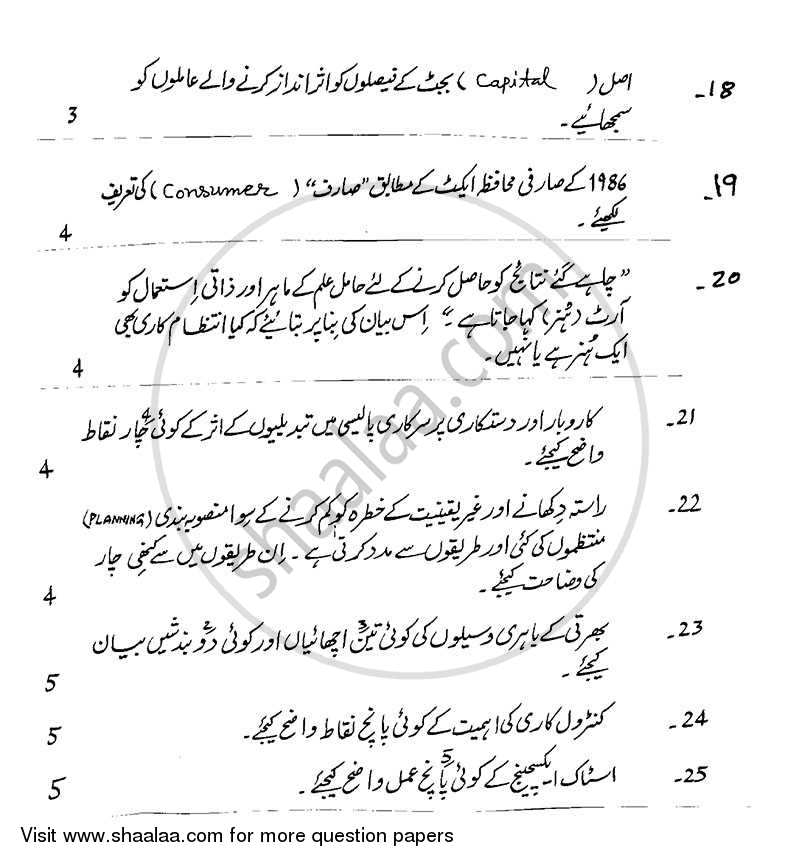 18۔ اصل ( Capital ) بجٹ کے فیصلوں کو اثر انداز کرنے والے عاملوں کو
سمجھائیے۔ 3
19۔ 1986 کے صارفی محافظہ ایکٹ کے مطابق ”صارف“ ( Consumer ) کی تعریف
لکھیئے۔ 4
20۔ ”چاہے گئے نتائج کو حاصل کرنے کے لئے حامل علم کے ماہر اور ذاتی اِستعمال کو
آرٹ (ہُنر) کہا جاتا ہے۔“ اِس بیان کی بنا پر بتائیے کہ کیا انتظام کاری بھی
ایک ہُنر ہے یا نہیں۔ 4
21۔ کاروبار اور دستکاری پر سرکاری پالیسی میں تبدیلیوں کے اثر کے کوئی چار 4 نقاط
واضح کیجئے۔ 4
22۔ راستہ دِکھانے اور غیر یقینیت کے خطرہ کو کم کرنے کے سِوا منصوبہ بندی (PLANNING)
منتظموں کی کئی اور طریقوں سے مدد کرتی ہے۔ اِن طریقوں میں سے کنھی چار
کی وضاحت کیجئے۔ 4
23۔ بھرتی کے باہری وسیلوں کی کوئی تین 3 اچھائیاں اور کوئی دو 2 بندشیں بیان
کیجئے۔ 5
24۔ کنٹرول کاری کی اہمیت کے کوئی پانچ نقاط واضح کیجئے۔ 5
25۔ اسٹاک ایکسچینج کے کوئی پانچ 5 عمل واضح کیجئے۔ 5
shaalaa.com
Visit www.shaalaa.com for more question papers